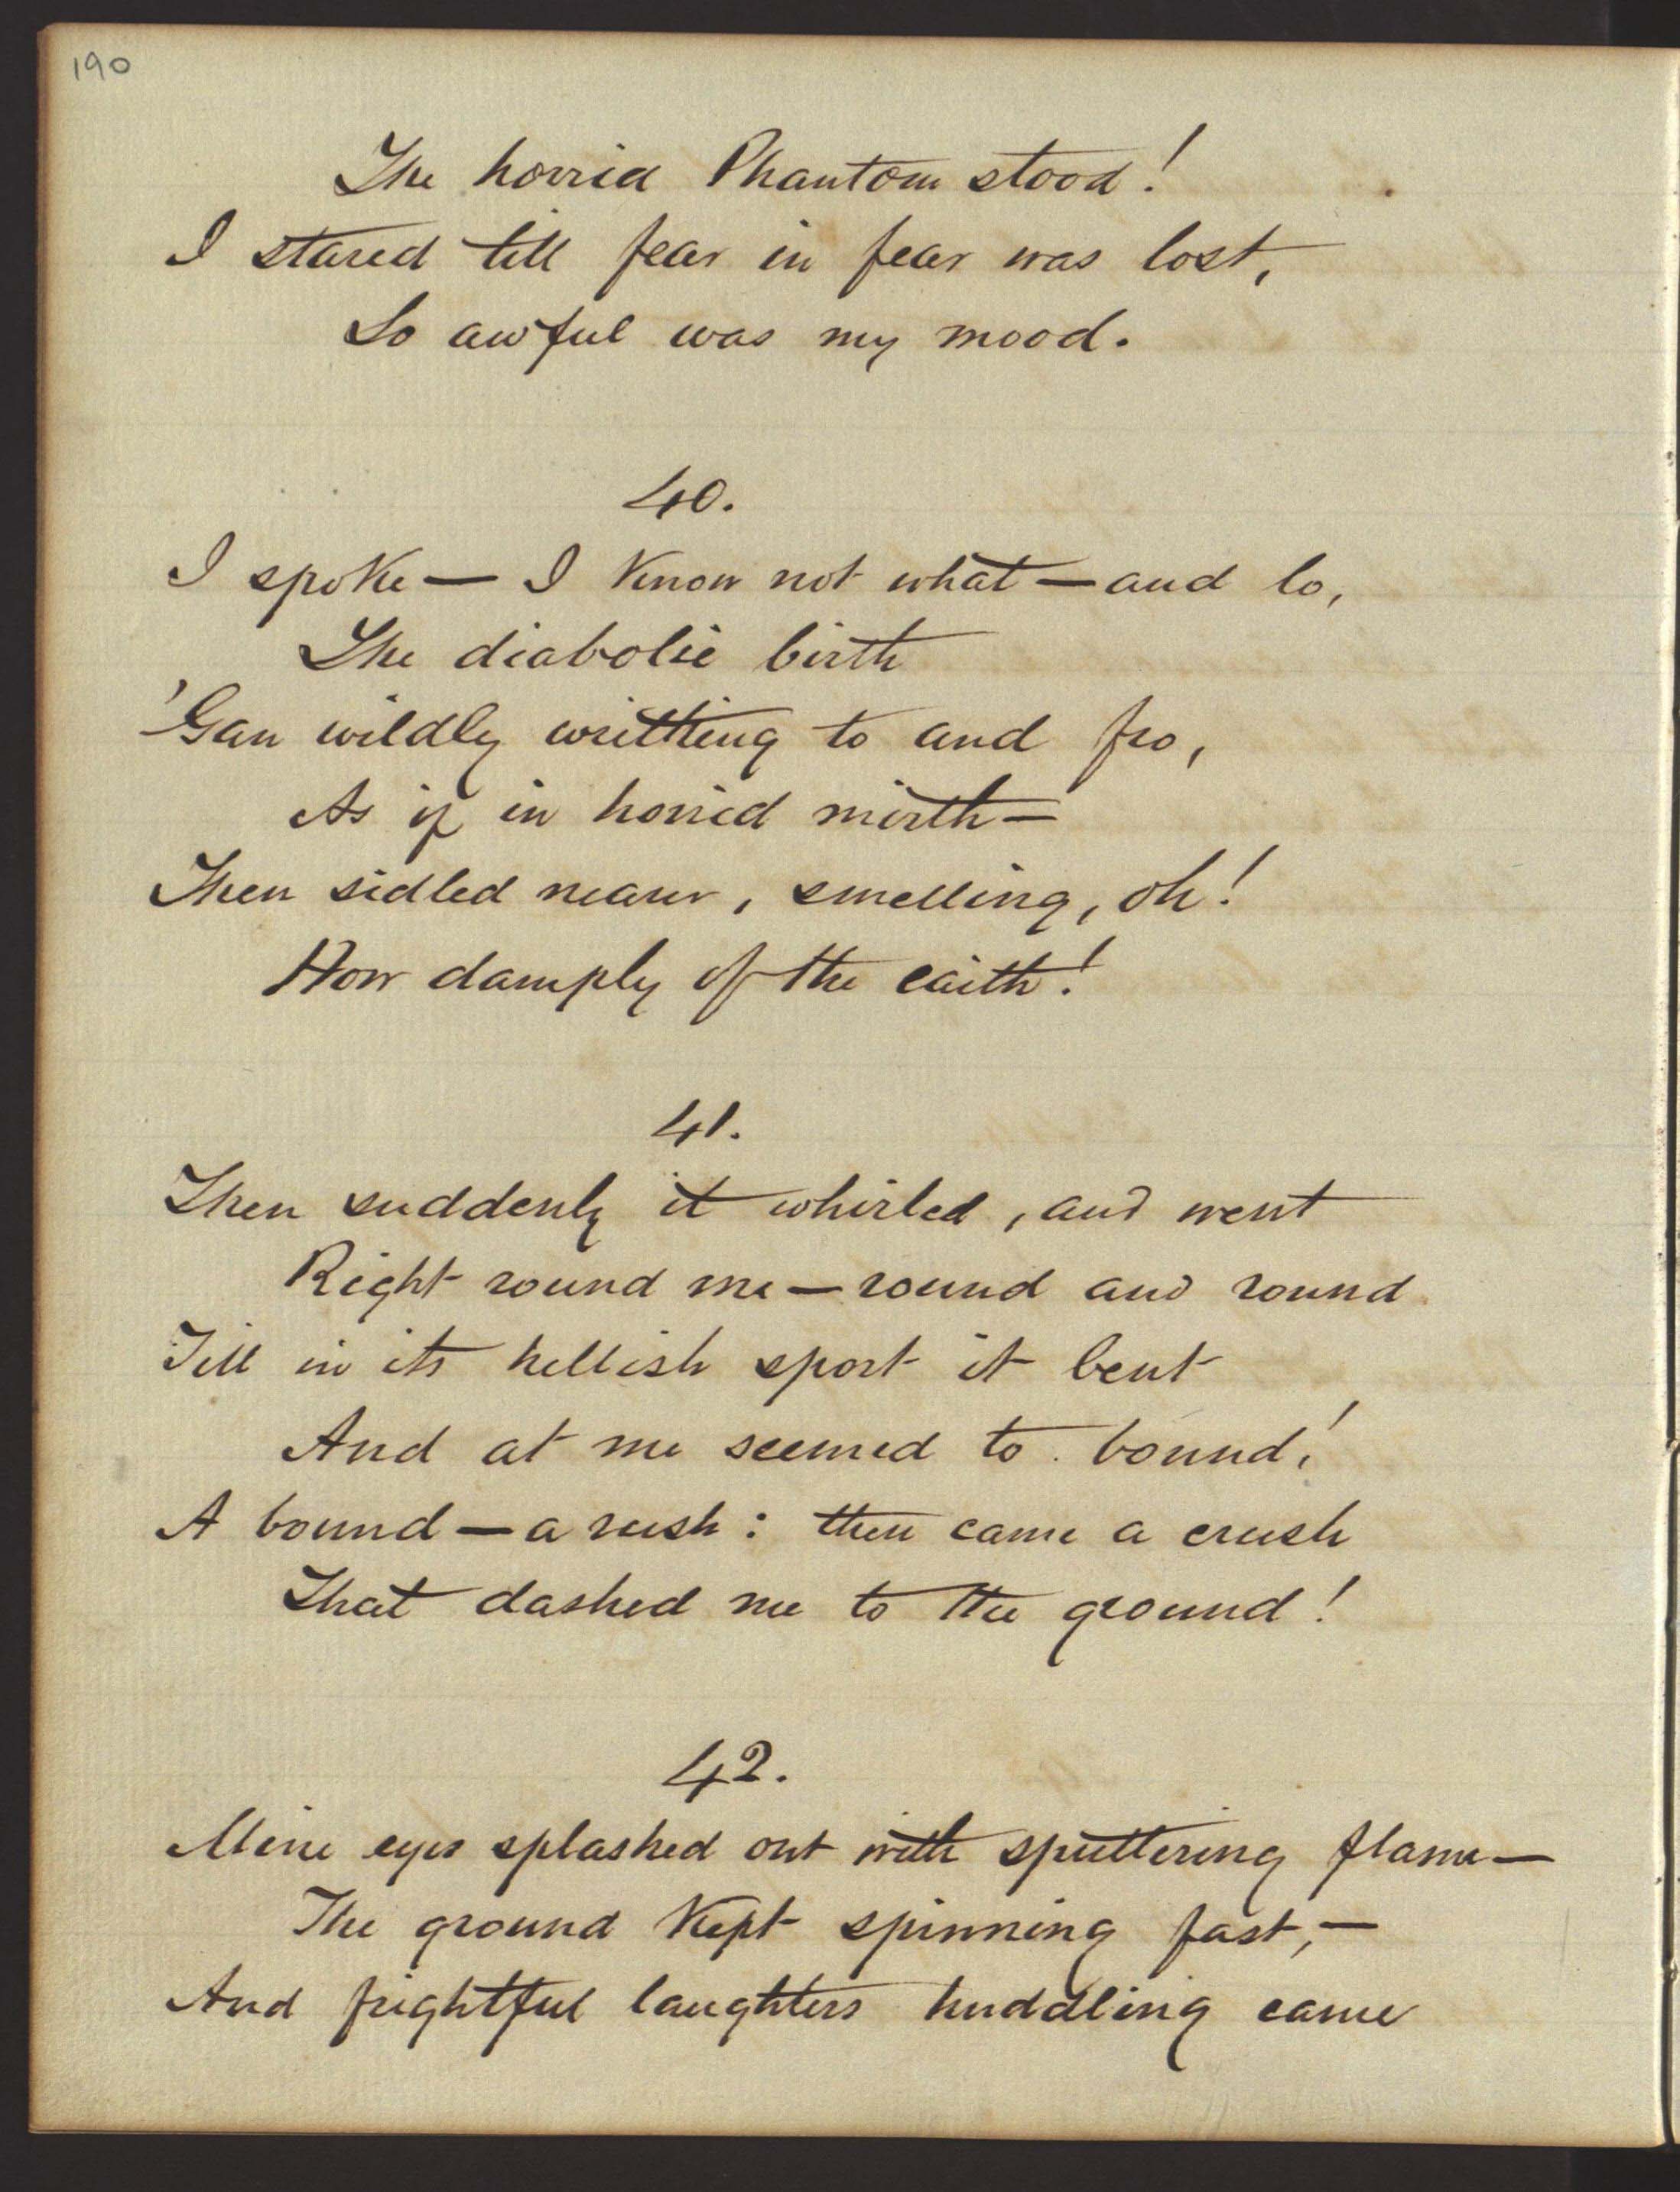 190
The horrid Phantom stood!
I stared till fear in fear was lost,
So awful was my mood.
40.
I spoke — I know not what — and lo,
The diabolic birth
'Gan wildly writhing to and fro,
As if in horrid mirth —
Then sidled nearer, smelling, oh!
How damply of the earth!
41.
Then suddenly it whirled, and went
Right round me — round and round
Till in its hellish sport it bent
And at me seemed to bound!
A bound — a rush: then came a crush
That dashed me to the ground!
42.
Mine eyes splashed out with sputtering flame —
The ground kept spinning fast, —
And frightful laughters huddling came